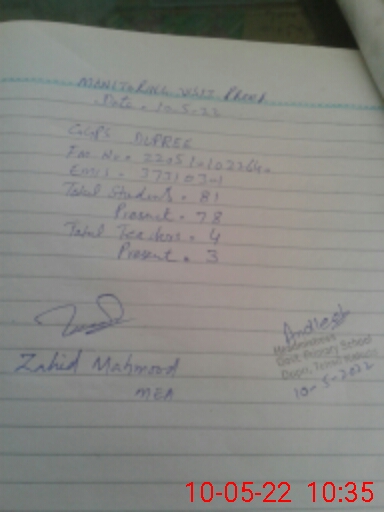 MONITORING VISIT PROOF
Date = 10-5-22
GGPS DUPREE
EMIS = 37310301
Total Students = 81
Present = 78
Total Teachers = 4
Present = 3
Zahid Mahmood
MEA
Headmistress
Govt. Primary School
10-5-2022
10-05-22 10:35